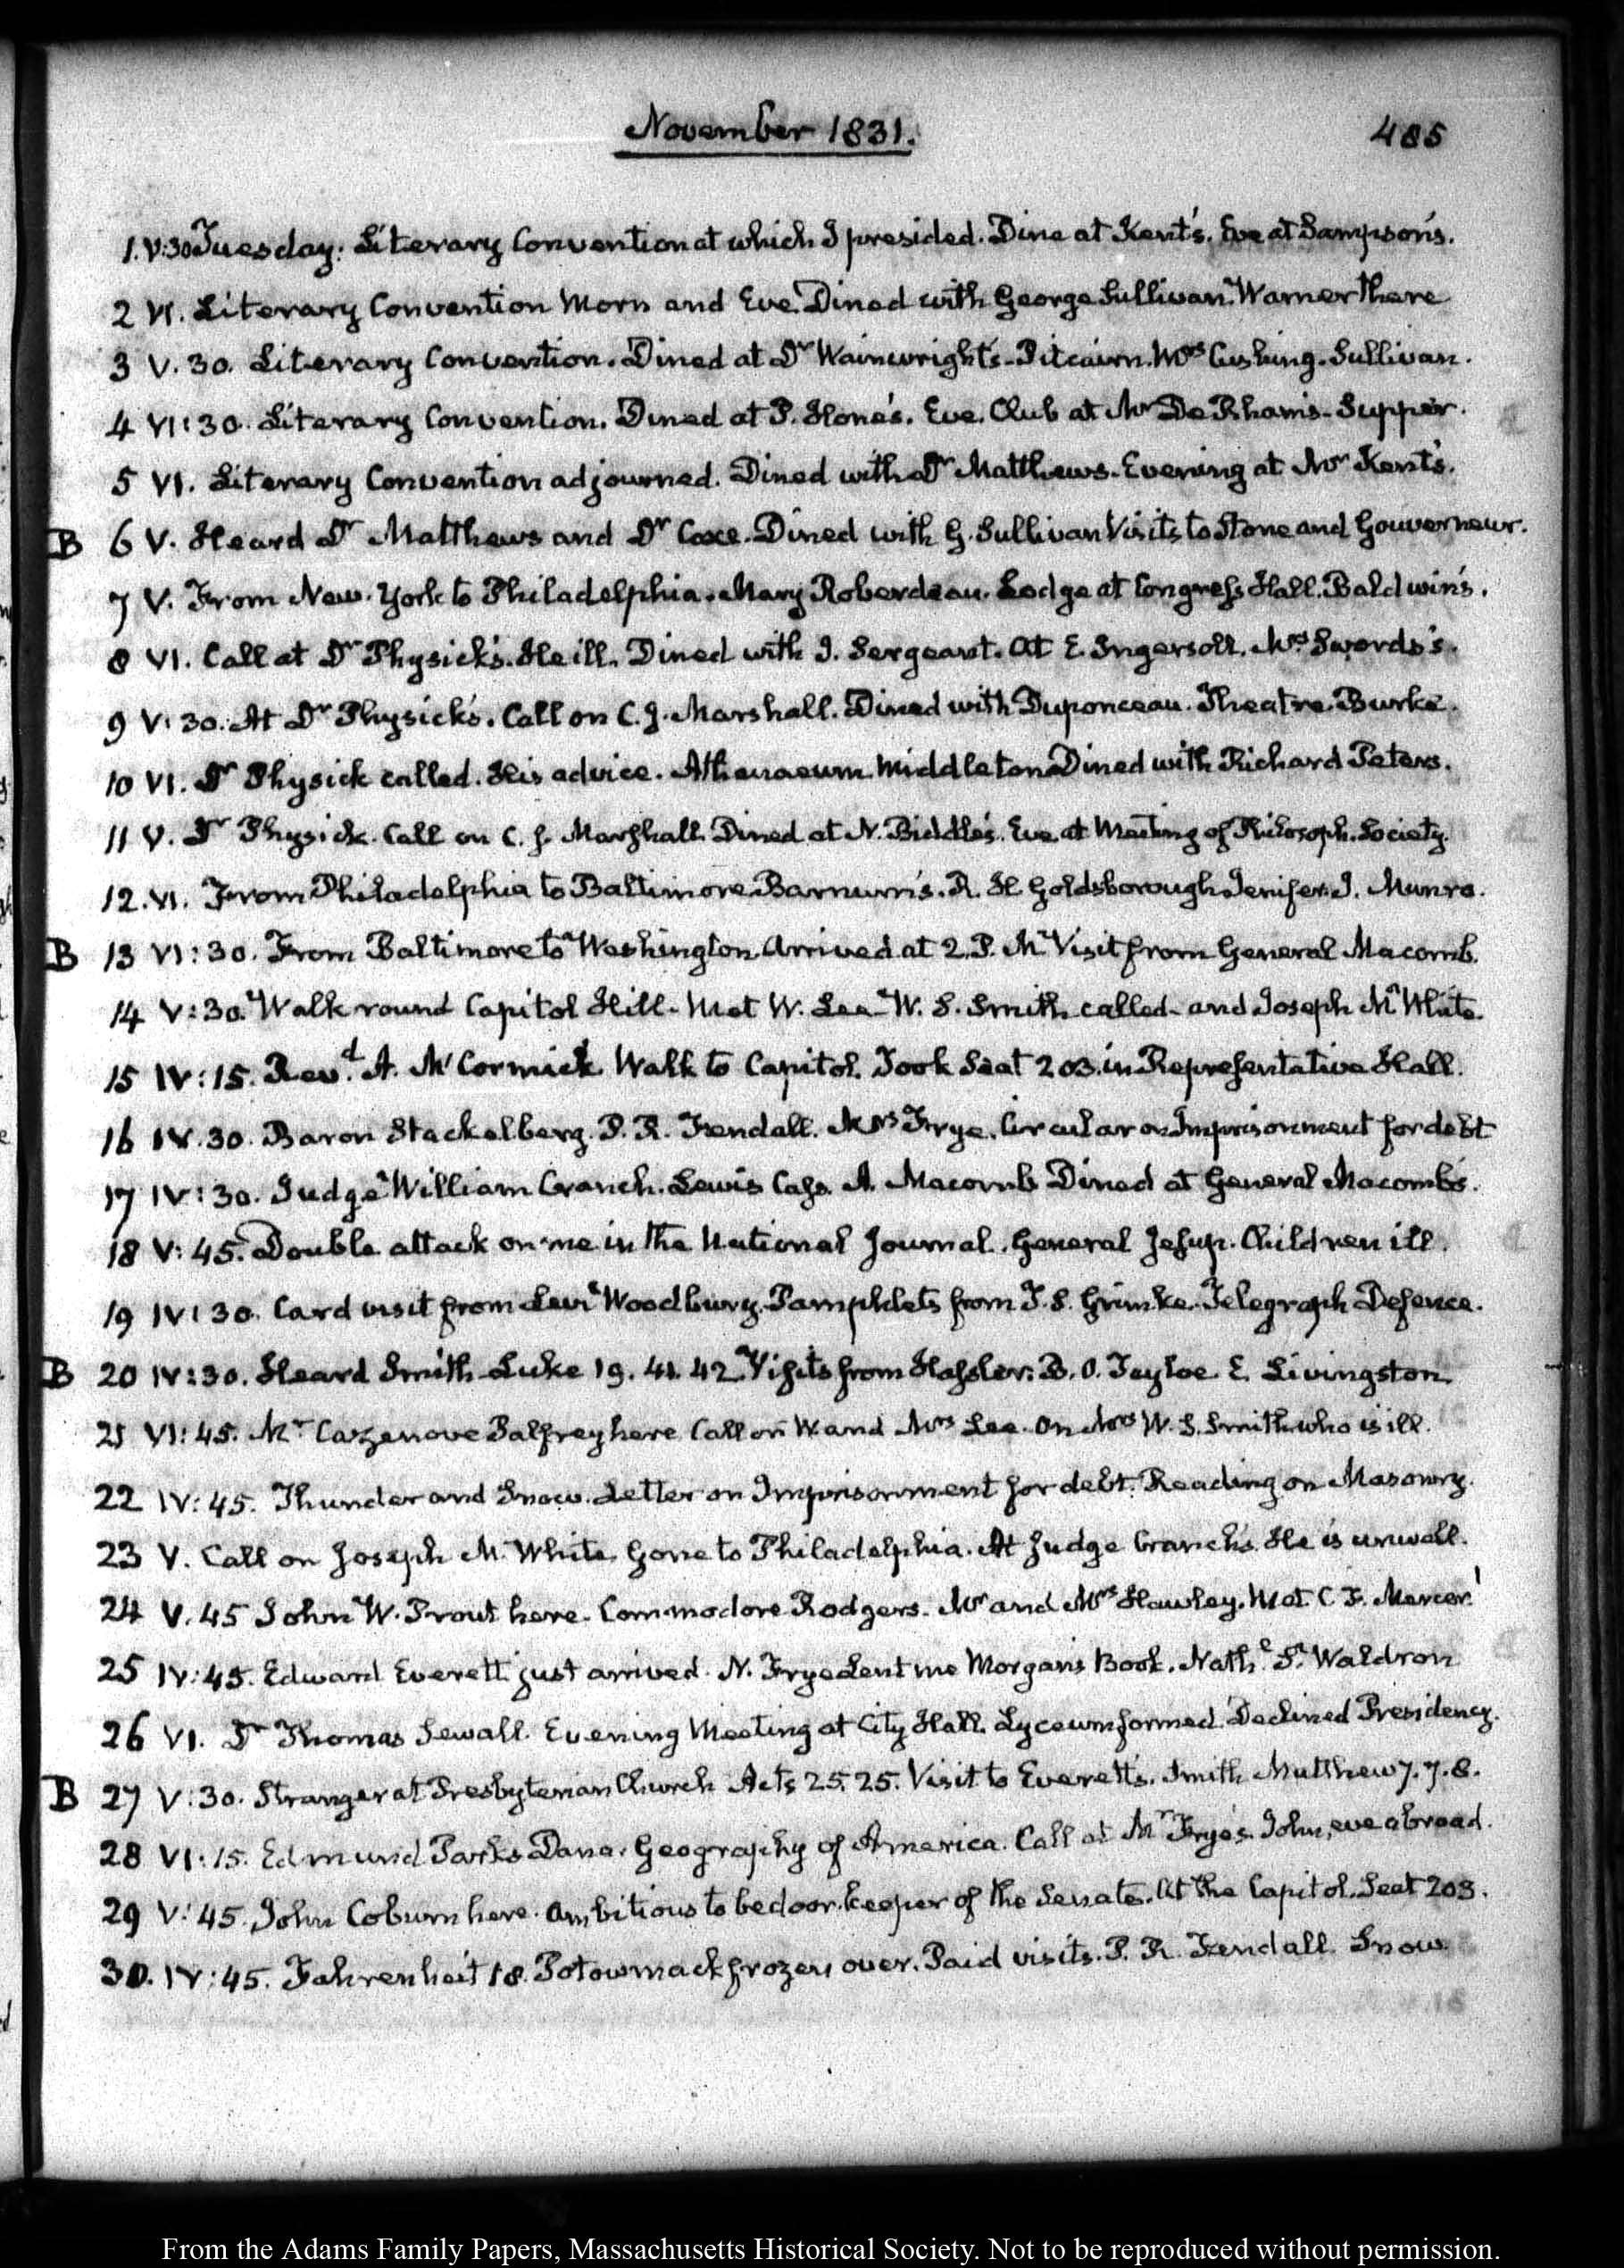 November 1831. 485
1. V:30 Tuesday. Literary Convention at which I presided. Dine at Kent's. Eve at Sampson's.
2 VI. Literary Convention Morn and Eve. Dined with George Sullivan. Warner there
3 V. 30. Literary Convention. Dined at Dr Wainwright's. Pitcairn. Mrs Cushing. Sullivan.
4 VI:30. Literary Convention. Dined at P. Hone's. Eve. Club at Mr De Rham's. Supper.
5 VI. Literary Convention adjourned. Dined with Dr Matthews. Evening at Mr Kent's.
B 6 V. Heard Dr Matthews and Dr Coxe. Dined with G. Sullivan Visits to and Gouverneur.
7 V. From New-York to Philadelphia. Mary Roberdeau. Lodge at Congress Hall. Baldwin's.
8 VI. Call at Dr Physick's. He ill. Dined with J. Sergeant. At E. Ingersoll. Mrs Swords's.
9 V:30. At Dr Physick's. Call on C. J. Marshall. Dined with Duponceau. Theatre. Burke.
10 VI. Dr Physick called. His advice. Athenaeum Middleton Dined with Richard Peters.
11 V. Dr Physick. Call on C. J. Marshall. Dined at N. Biddle's. Eve. at Meeting of Philosoph. Society.
12. VI. From Philadelphia to Baltimore Barnum's. R. H Goldsborough Jenifer. J. Munro.
B 13 VI:30. From Baltimore to Washington. Arrived at 2. P. M. Visit from General Macomb.
14 V:30. Walk round Capitol Hill. Met W. Lee. W. S. Smith called. and Joseph M. White.
15 IV:15. Revd. A. McCormick. Walk to Capitol. Took Seat 203. in Representative Hall.
16 IV. 30. Baron Stackelberg. P. R. Fendall. Mrs Frye. Circular on Imprisonment for debt
17 IV:30. Judge William Cranch. Lewis Cass. A. Macomb Dined at General Macomb's.
18 V:45. Double attack on me in the National Journal. General Jesup. Children ill.
19 IV:30. Card visit from Levi Woodbury. Pamphlets from T. S. Grimke. Telegraph Defence.
B 20 IV:30. Heard Smith Luke 19. 41. 42. Visits from Hassler. B. O. Tayloe. E. Livingston
21 VI:45. Mr Cazenove Palfrey here Call on W. and Mrs Lee. On Mrs W. S. Smith who is ill.
22 IV:45. Thunder and Snow. Letter on Imprisonment for debt. Reading on Masonry.
23 V. Call on Joseph M. White. Gone to Philadelphia. At Judge Cranch's. He is unwell.
24 V. 45 John W. Prout here. Commodore Rodgers. Mr and Mrs Hawley. Met C F. Mercer.
25 IV:45. Edward Everett just arrived. N. Frye Lent me Morgan's Book. Nathl S. Waldron
26 VI. Dr Thomas Sewall. Evening Meeting at City Hall. Lyceum formed. Declined Presidency.
B 27 V:30. Stranger at Presbyterian Church Acts 25. 25. Visit to Everett's. Smith Matthew 7. 7. 8.
28 VI:15. Edmund Parks Dana. Geography of America. Call at Mr Frye's. John, eve abroad.
29 V:45. John Coburn here. Ambitious to be door-keeper of the Senate. At the Capitol. Seat 203.
30. IV:45. Fahrenheit 18. Potowmack frozen over. Paid visits. P. R. Fendall. Snow
From the Adams Family Papers, Massachusetts Historical Society. Not to be reproduced without permission.